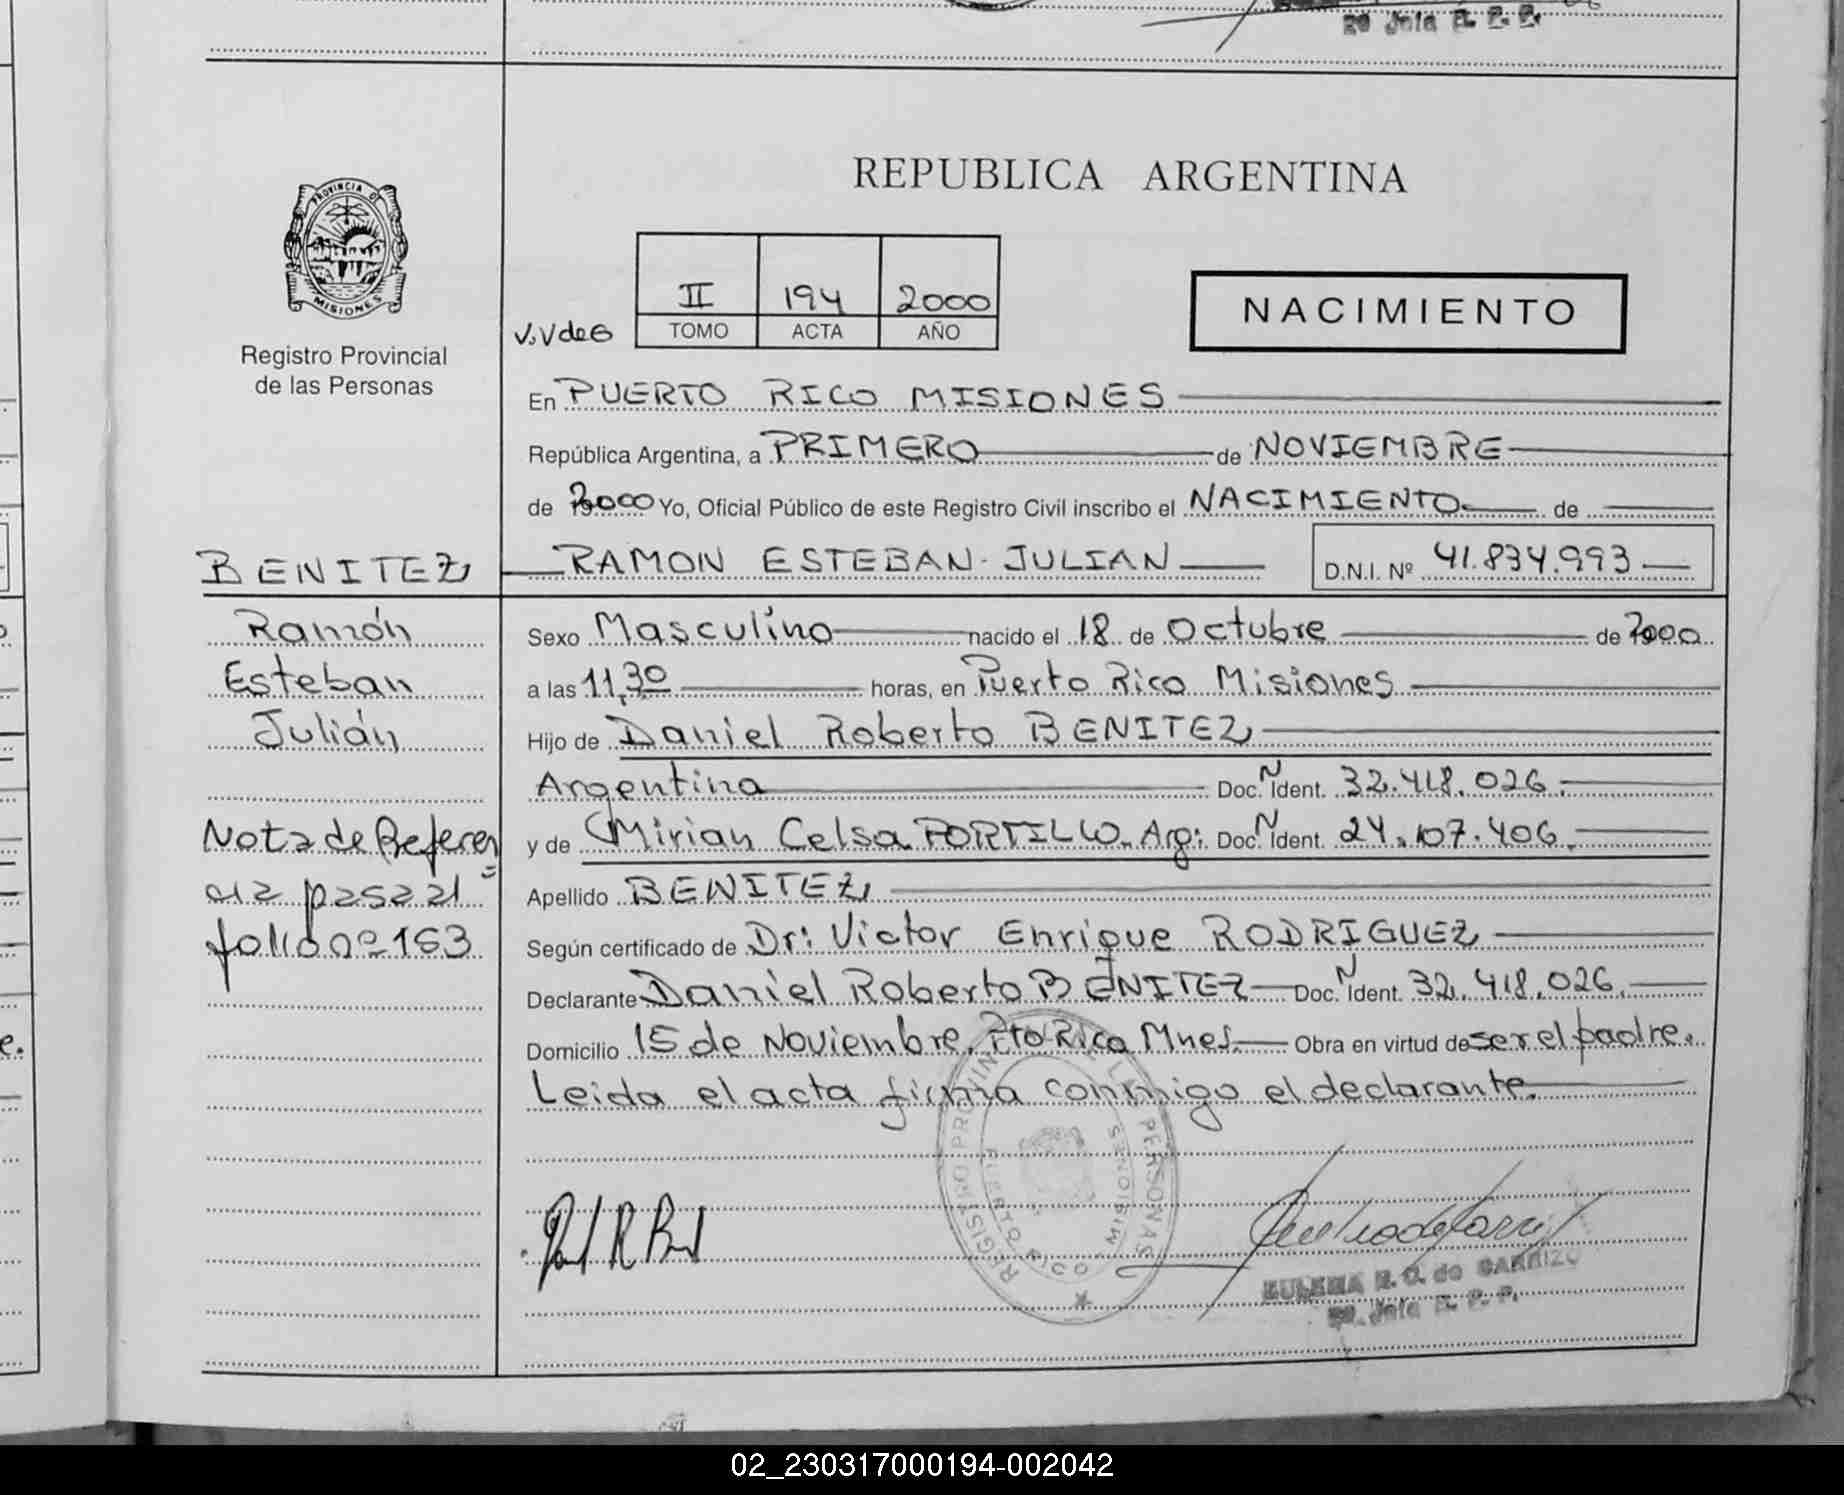 2º Jefa R. P. P.
REPUBLICA ARGENTINA
PROVINCIA D
MISIONES
Registro Provincial
de las Personas
V.V de G
II 194 2000
TOMO ACTA AÑO
NACIMIENTO
En PUERTO RICO MISIONES
República Argentina, a PRIMERO de NOVIEMBRE
de 2000 Yo, Oficial Público de este Registro Civil inscribo el NACIMIENTO de
BENITEZ RAMON ESTEBAN JULIAN D.N.I. Nº 41.834.993
Ramón
Esteban
Julián
Sexo Masculino nacido el 18 de Octubre de 2000
a las 11,30 horas, en Puerto Rico Misiones
Hijo de Daniel Roberto BENITEZ
Argentina Doc. N Ident. 32.418.026.
y de Mirian Celsa PORTILLO. Arg: Doc. N Ident. 24.107.406.
Apellido BENITEZ
Según certificado de Dr: Victor Enrique RODRIGUEZ
Declarante Daniel Roberto BENITEZ Doc. N Ident. 32.418.026.
Domicilio 15 de Noviembre. Pto Rico Mnes. Obra en virtud de ser el padre.
Leida el acta firma conmigo el declarante.
Nota de Referen=
cia pasa al
folio nº 163
REGISTRO PROVIN PERSONAS
PUERTO RICO MISIONES
EULEMA R. O. de CARRIZO
2º Jefa R. P. P.
e.
02_230317000194-002042